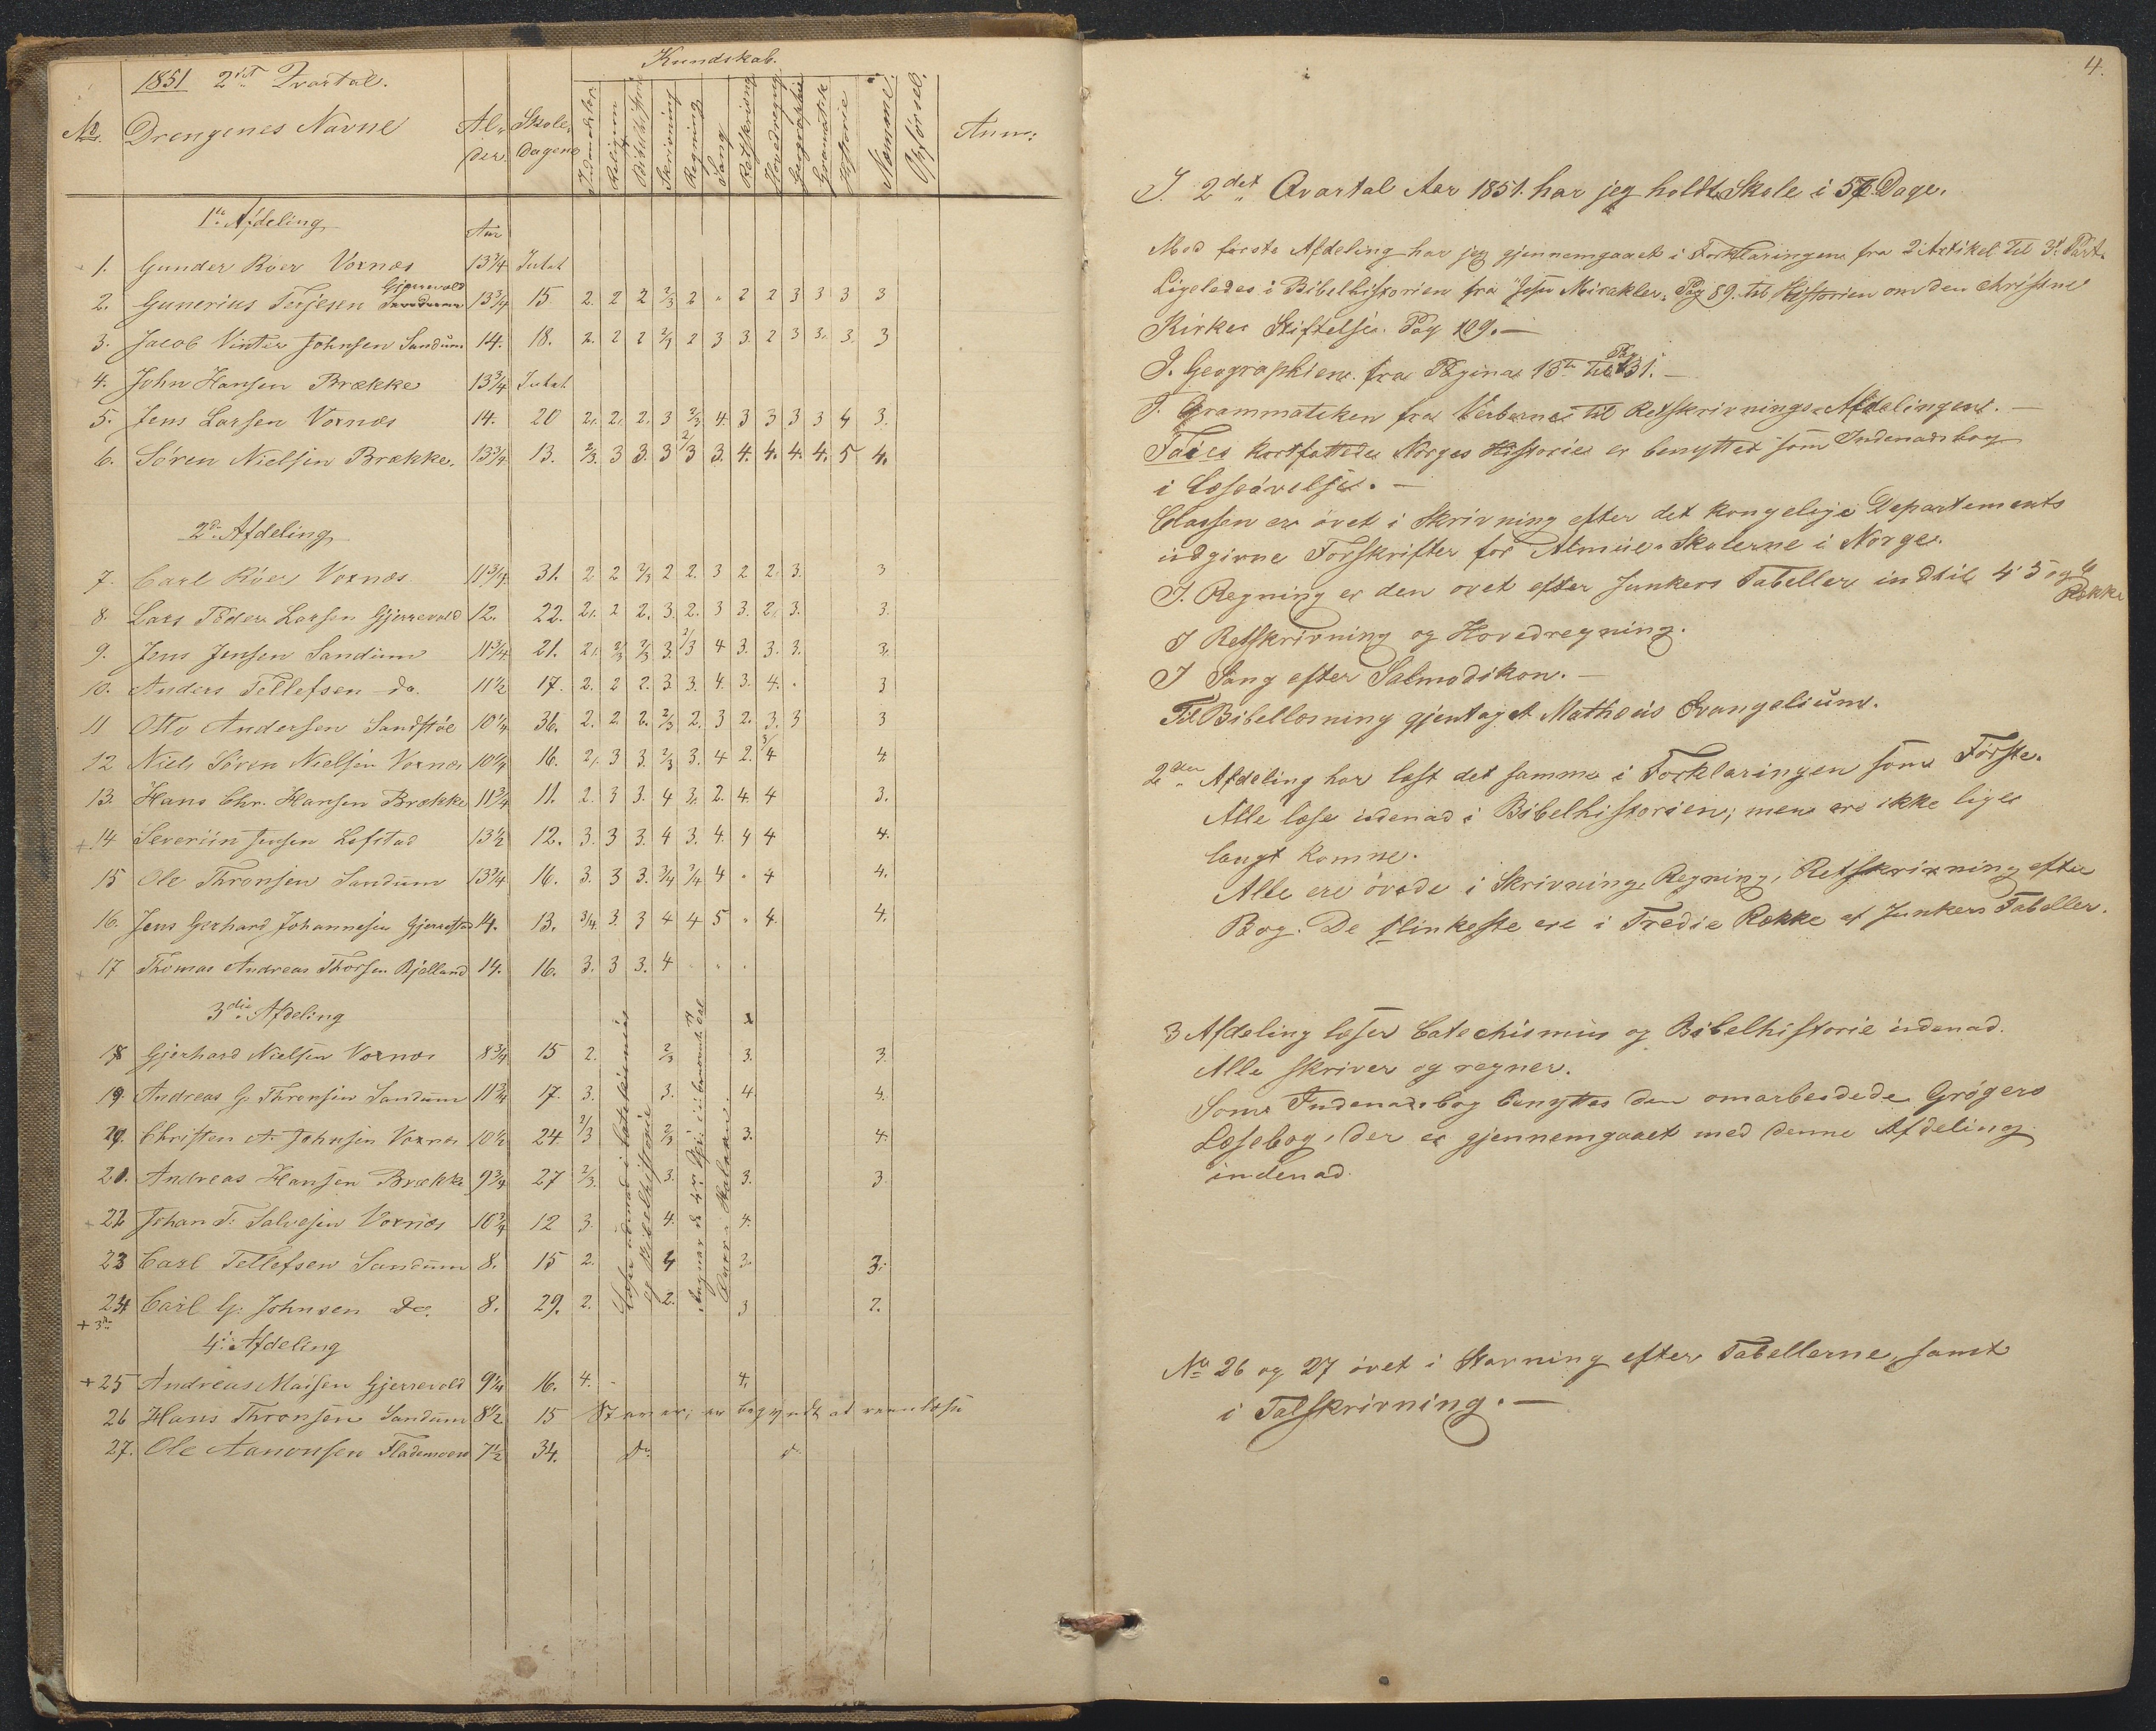 1851 2det Qvartal.
Kundskab.
No. Drengenes Navne Al-der. Skole-dagene Indenadslæs. Religion Bibelhistorie Skrivning Regning Sang Retskrivning Hovedregning Geographie Gramatik Historie Nemme. Opførsel. Anm:
1ste Afdeling Aar
1. Gunder Röer Voxnæs 13 3/4 Intet
2. Gunerius Terjesen Gjerrevold 13 3/4 15 2. 2 2 2/3 2 " 2 2 3 3 3 3
3. Jacob Vinter Johnsen Sandum 14. 18. 2. 2 2 2/3 2 3 3. 2 3 3. 3. 3
4. John Hansen Brække 13 3/4 Intet
5. Jens Larsen Voxnæs 14. 20 2. 2. 2. 3 2/3 4. 3 3 3 3 4 3.
6. Sören Nielsen Brække. 13 3/4 13. 2/3. 3 3. 3 2/3 3. 4. 4. 4. 4. 5 4.
2den Afdeling
7. Carl Röer Voxnæs 11 3/4 31. 2 2 2/3 2 2. 3 2 2. 3. 3
8. Lars Peder Larsen Gjerrevold 12. 22. 2. 2 2. 3. 2. 3 3. 2. 3. 3.
9. Jens Jensen Sandum 11 3/4 21. 2. 2/3 2/3 3. 2/3 4 3. 3. 3. 3.
10. Anders Tellefsen do. 11 1/2 17. 2. 2 2. 3. 3. 4. 3. 4. . 3
11 Otto Andersen Sandstöe 10 1/4 36. 2. 2. 2. 2/3 2. 3 2. 3. 3 3
12 Niels Sören Nielsen Voxnæs 10 1/4 16. 2. 3 3. 2/3 3. 4 2. 3/4 4
13. Hans Chr. Hansen Brække 11 3/4 11. 2. 3 3. 4 3. 2. 4. 4 3.
+14 Severiin Jensen Lofstad 13 1/2 12. 3. 3 3. 4 3. 4. 4 4 4.
15 Ole Thronsen Sandum 13 3/4 16. 3. 3 3. 3/4 3/4 4 . 4 4.
16. Jens Gerhard Johannesen Gjerrestad 14. 13. 3/4. 3. 3 4 4 5 . 4. 4.
+17 Thomas Andreas Thorsen Bjelland 14. 16. 3. 3 3. 4 . . .
3die Afdeling
18 Gjerhard Nielsen Voxnæs 8 3/4 15 2. 2/3 3. 3.
19. Andreas G. Thronsen Sandum 11 3/4 17. 3. 3. 4. 4.
20. Christen A. Johnsen Voxnæs 10 1/2 24. 2/3 2/3 3. 4.
21. Andreas Hansen Brække 9 3/4 27 2/3. 3. 3. 3
22 Johan T. Salvesen Voxnæs 10 3/4 12 3. 4. 4.
23 Carl Tellefsen Sandum 8. 15 2. 4 3. 3.
24 Carl G. Johnsen Do. 8. 29. 2. 2. 3 2.
Læser udenad i Catekismus
og Bibelhistorie
Regner de 4 i ubenævnte Tal
4de Afdeling
+25 Andreas Maisen Gjerrevold 9 1/4 16. 4. 4.
26 Hans Thronsen Sandum 8 1/2 15 Staver, er begyndt at
27. Ole Aanonsen Flademoen 7 1/2 34. do. do.
4.
I 2det Qvartal Aar 1851. har jeg holdt Skole i 56 Dage.
Med første Afdeling har jeg gjennemgaaet i Forklaringen fra 2 Artikel til 3d. Part.
Ligeledes i Bibelhistorien fra "Jesu Mirakler. Pag 89. til Historien om den christne
Kirkes Stiftelse. Pag 109.—
I Geographien fra Pagina 13de til Pag 31.—
I Grammatiken fra Verberne til Retskrivnings-Afdelingen.—
Faÿes kortfattede Norges Historie er benyttet som Indenadsbog
i Læseövelse.—
Classen er övet i Skrivning efter det kongelige Departements
udgivne Forskrifter for Almue-Skolerne i Norge.
I Regning er den övet efter Junkers Tabeller indtil 4 5 og 6 Række
I Retskrivning og Hovedregning.
I Sang efter Salmodikon.—
Til Bibellæsning gjentaget Mathæus Evangelium.
2den Afdeling har læst det samme i Forklaringen som Første.
Alle læse udenad i Bibelhistorien; men ere ikke lige
langt komne.
Alle ere övede i Skrivning, Regning, Retskrivning efter
Bog. De flinkeste ere i Tredie Række af Junkers Tabeller.
3 Afdeling læser Catechismus og Bibelhistorie udenad.
Alle skriver og regner.
Som Indenadsbog benyttes den omarbeidede Grögers
Læsebog, der er gjennemgaaet med denne Afdeling
indenad.
No 26 og 27 övet i Stavning efter Tabellerne, samt
i Talskrivning.—